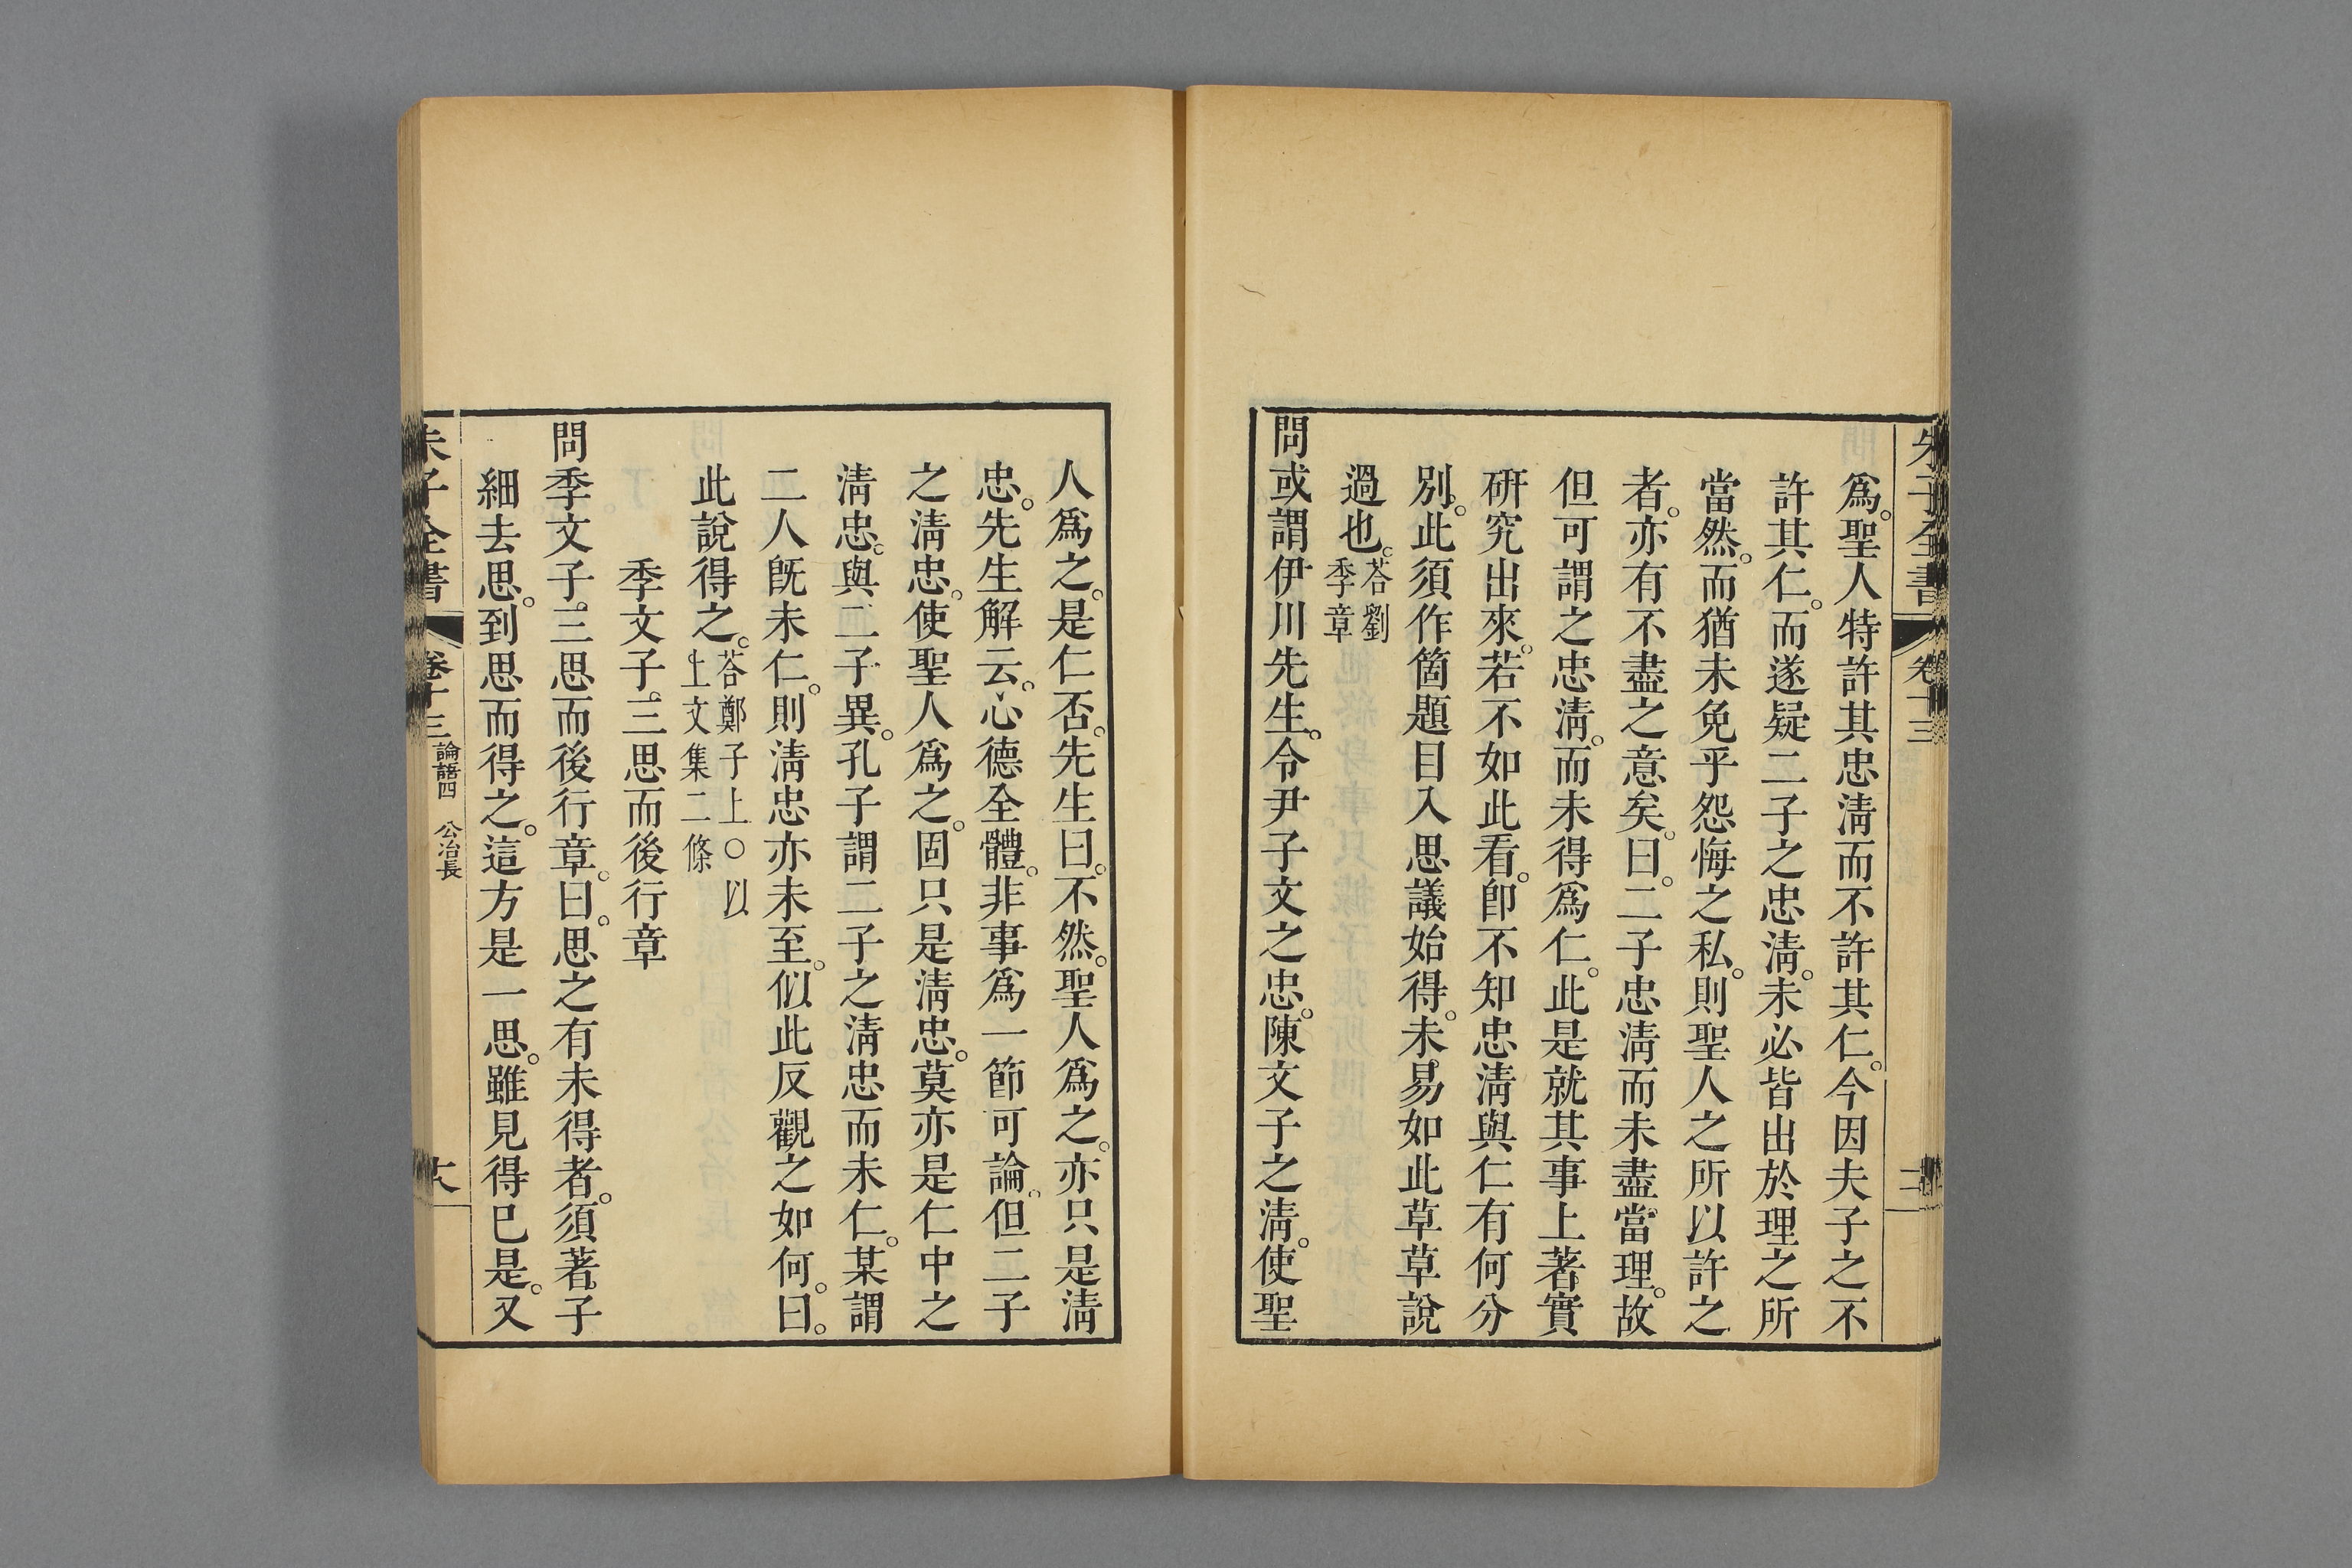 朱子全書 卷十三
爲。聖人特許其忠淸而不許其仁。今因夫子之不
許其仁。而遂疑二子之忠淸。未必皆出於理之所
當然。而猶未免乎怨悔之私。則聖人之所以許之
者。亦有不盡之意矣。曰。二子忠淸而未盡當理。故
但可謂之忠淸。而未得爲仁。此是就其事上著實
硏究出來。若不如此看。卽不知忠淸與仁有何分
別。此須作箇題目入思議始得。未易如此草草說
過也。答劉
季章
問或謂伊川先生。令尹子文之忠。陳文子之淸。使聖
人爲之。是仁否。先生曰。不然。聖人爲之。亦只是淸
忠。先生解云。心德全體。非事爲一節可論。但二子
之淸忠。使聖人爲之。固只是淸忠。莫亦是仁中之
淸忠。與二子異。孔子謂二子之淸忠而未仁。某謂
二人旣未仁。則淸忠亦未至。似此反觀之如何。曰。
此說得之。答鄭子上○以
上文集二條
季文子。三思而後行章
問季文子。三思而後行章。曰。思之有未得者。須著子
細去思。到思而得之。這方是一思。雖見得已是。又
朱子全書 卷十三 論語四 公冶長